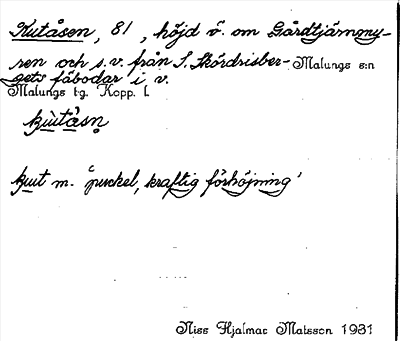 Kutåsen, 81, höjd ö. om Gårdtjärnmy-
ren och s.v. från S. Skördrisber- Malungs s:n
gets fäbodar i v.
Malungs tg. Kopp. l.
kùtå̀sn̥
kut m. "puckel, kraftig förhöjning'
Niss Hjalmar Matsson 1931